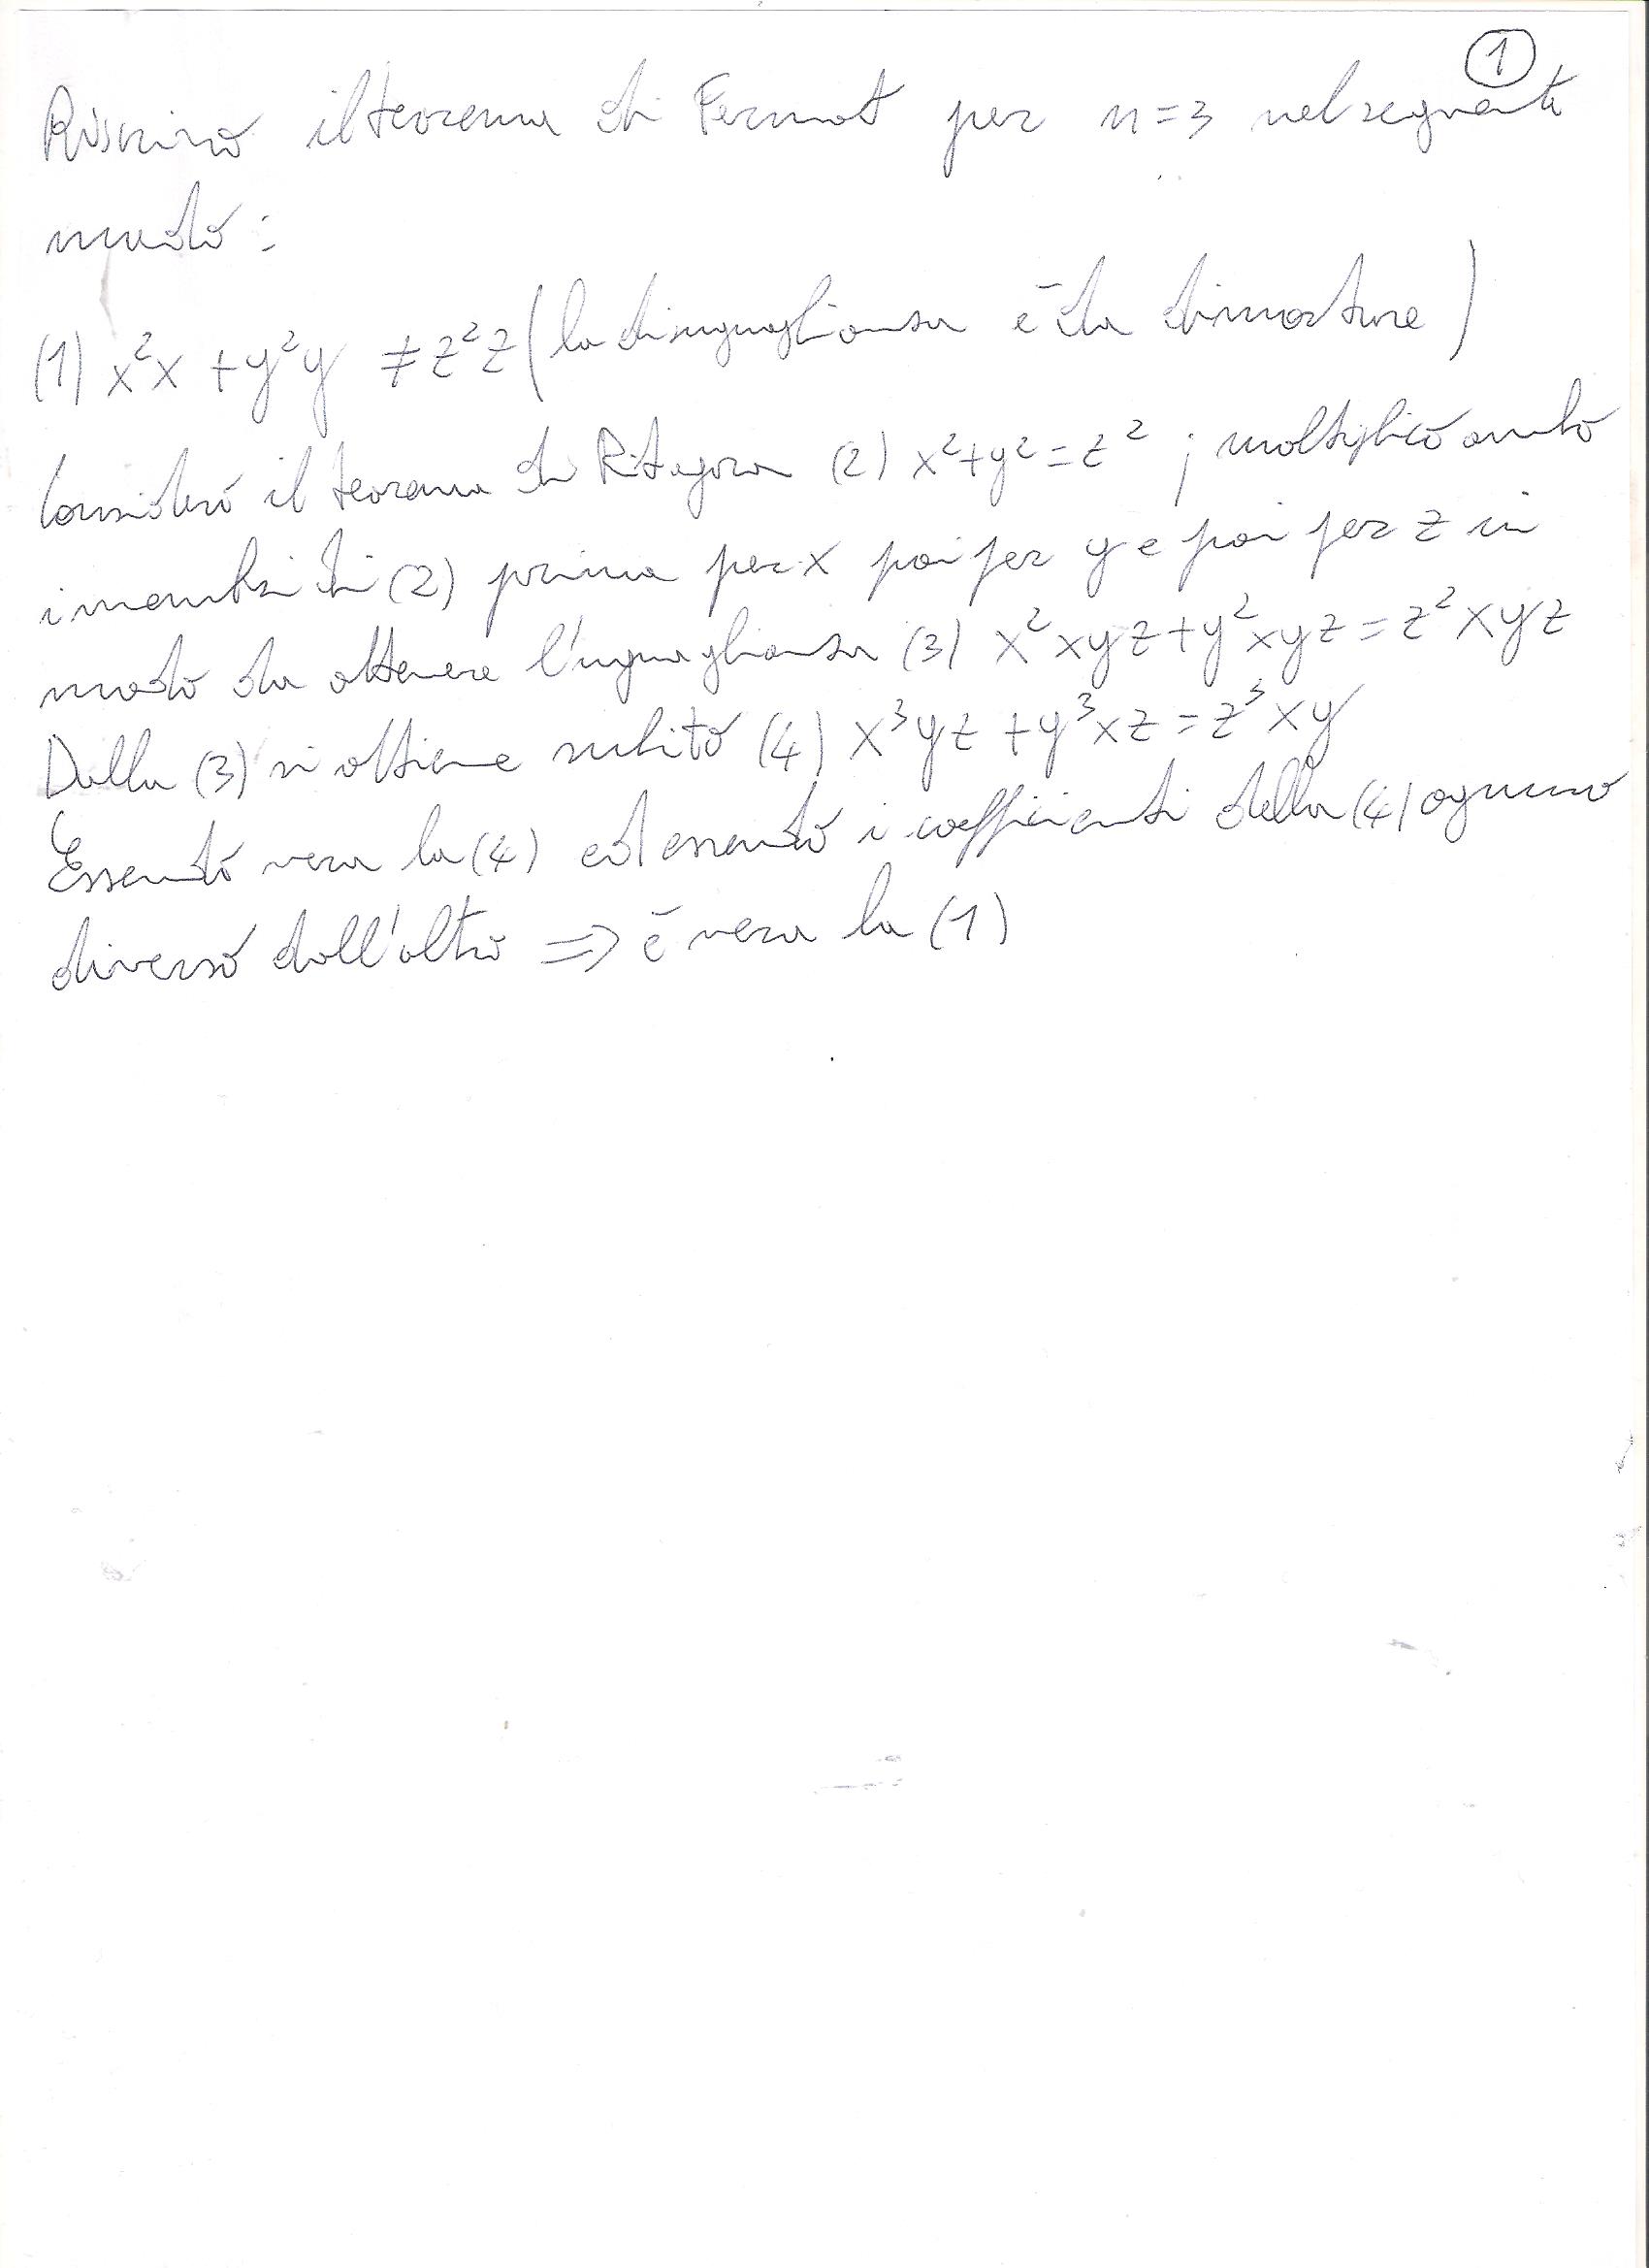 1
Riscrivo il teorema di Fermat per n=3 nel seguente
modo:
(1) x²x + y²y ≠ z²z (la disuguaglianza è da dimostrare)
Considero il teorema di Pitagora (2) x²+y²=z² ; moltiplico ambo
i membri di (2) prima per x poi per y e poi per z in
modo da ottenere l'uguaglianza (3) x²xyz+y²xyz=z²xyz
Dalla (3) si ottiene subito (4) x³yz+y³xz=z³xy
Essendo vera la (4) ed essendo i coefficienti della (4) ognuno
diverso dall'altro => è vera la (1)